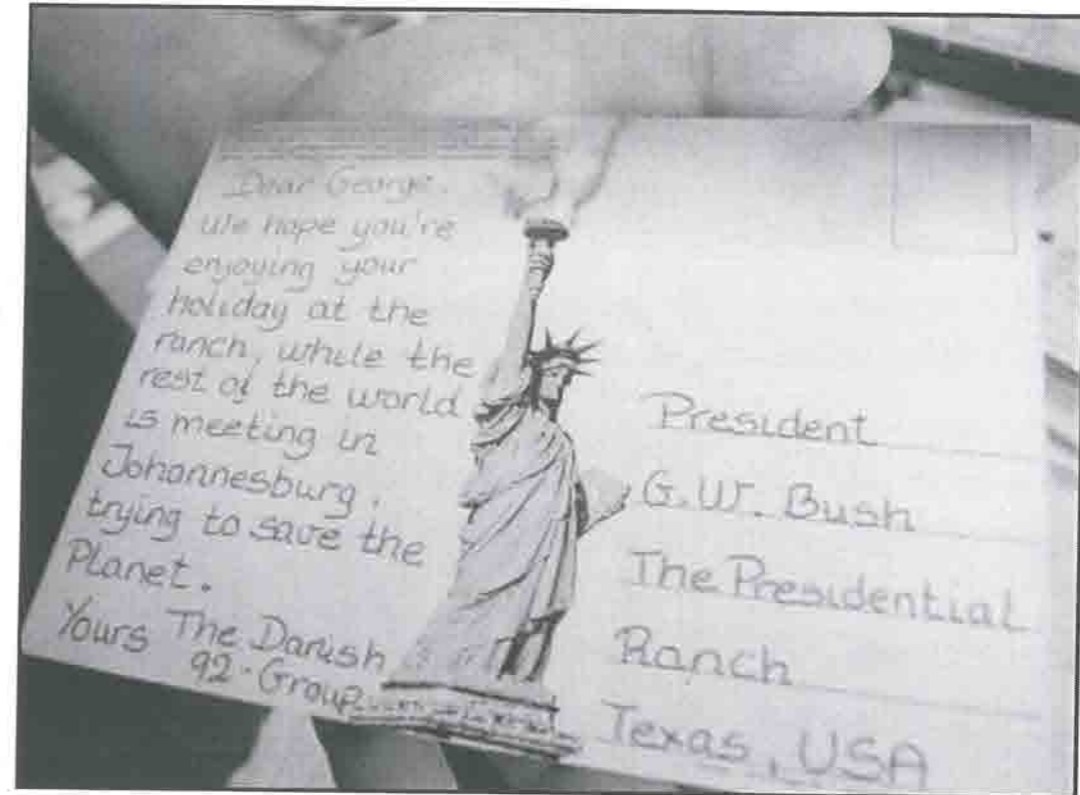 Dear George.
We hope you're
enjoying your
holiday at the
ranch, while the
rest of the world
is meeting in
Johannesburg.
trying to save the
Planet.
Yours The Danish
92-Group
President
G.W. Bush
The Presidential
Ranch
Texas, USA